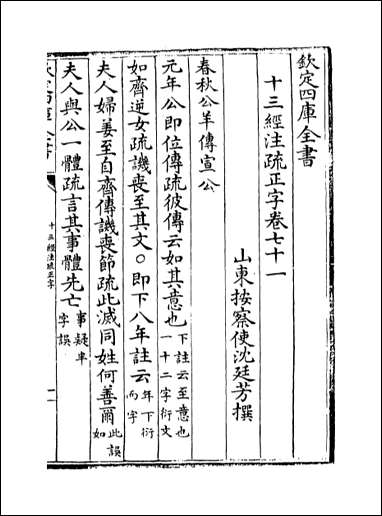 欽定四庫全書
十三經注疏正字卷七十一
山東按察使沈廷芳撰
春秋公羊傳宣公
元年公即位傳疏彼傳云如其意也下註云至意也一十二字衍文
如齊逆女疏譏喪至其文○即下八年註云年下衍向字
夫人婦姜至自齊傳譏喪節疏此滅同姓何善爾此誤如
夫人與公一體疏言其事體先亡事疑卑字誤
十三經注疏正字
一